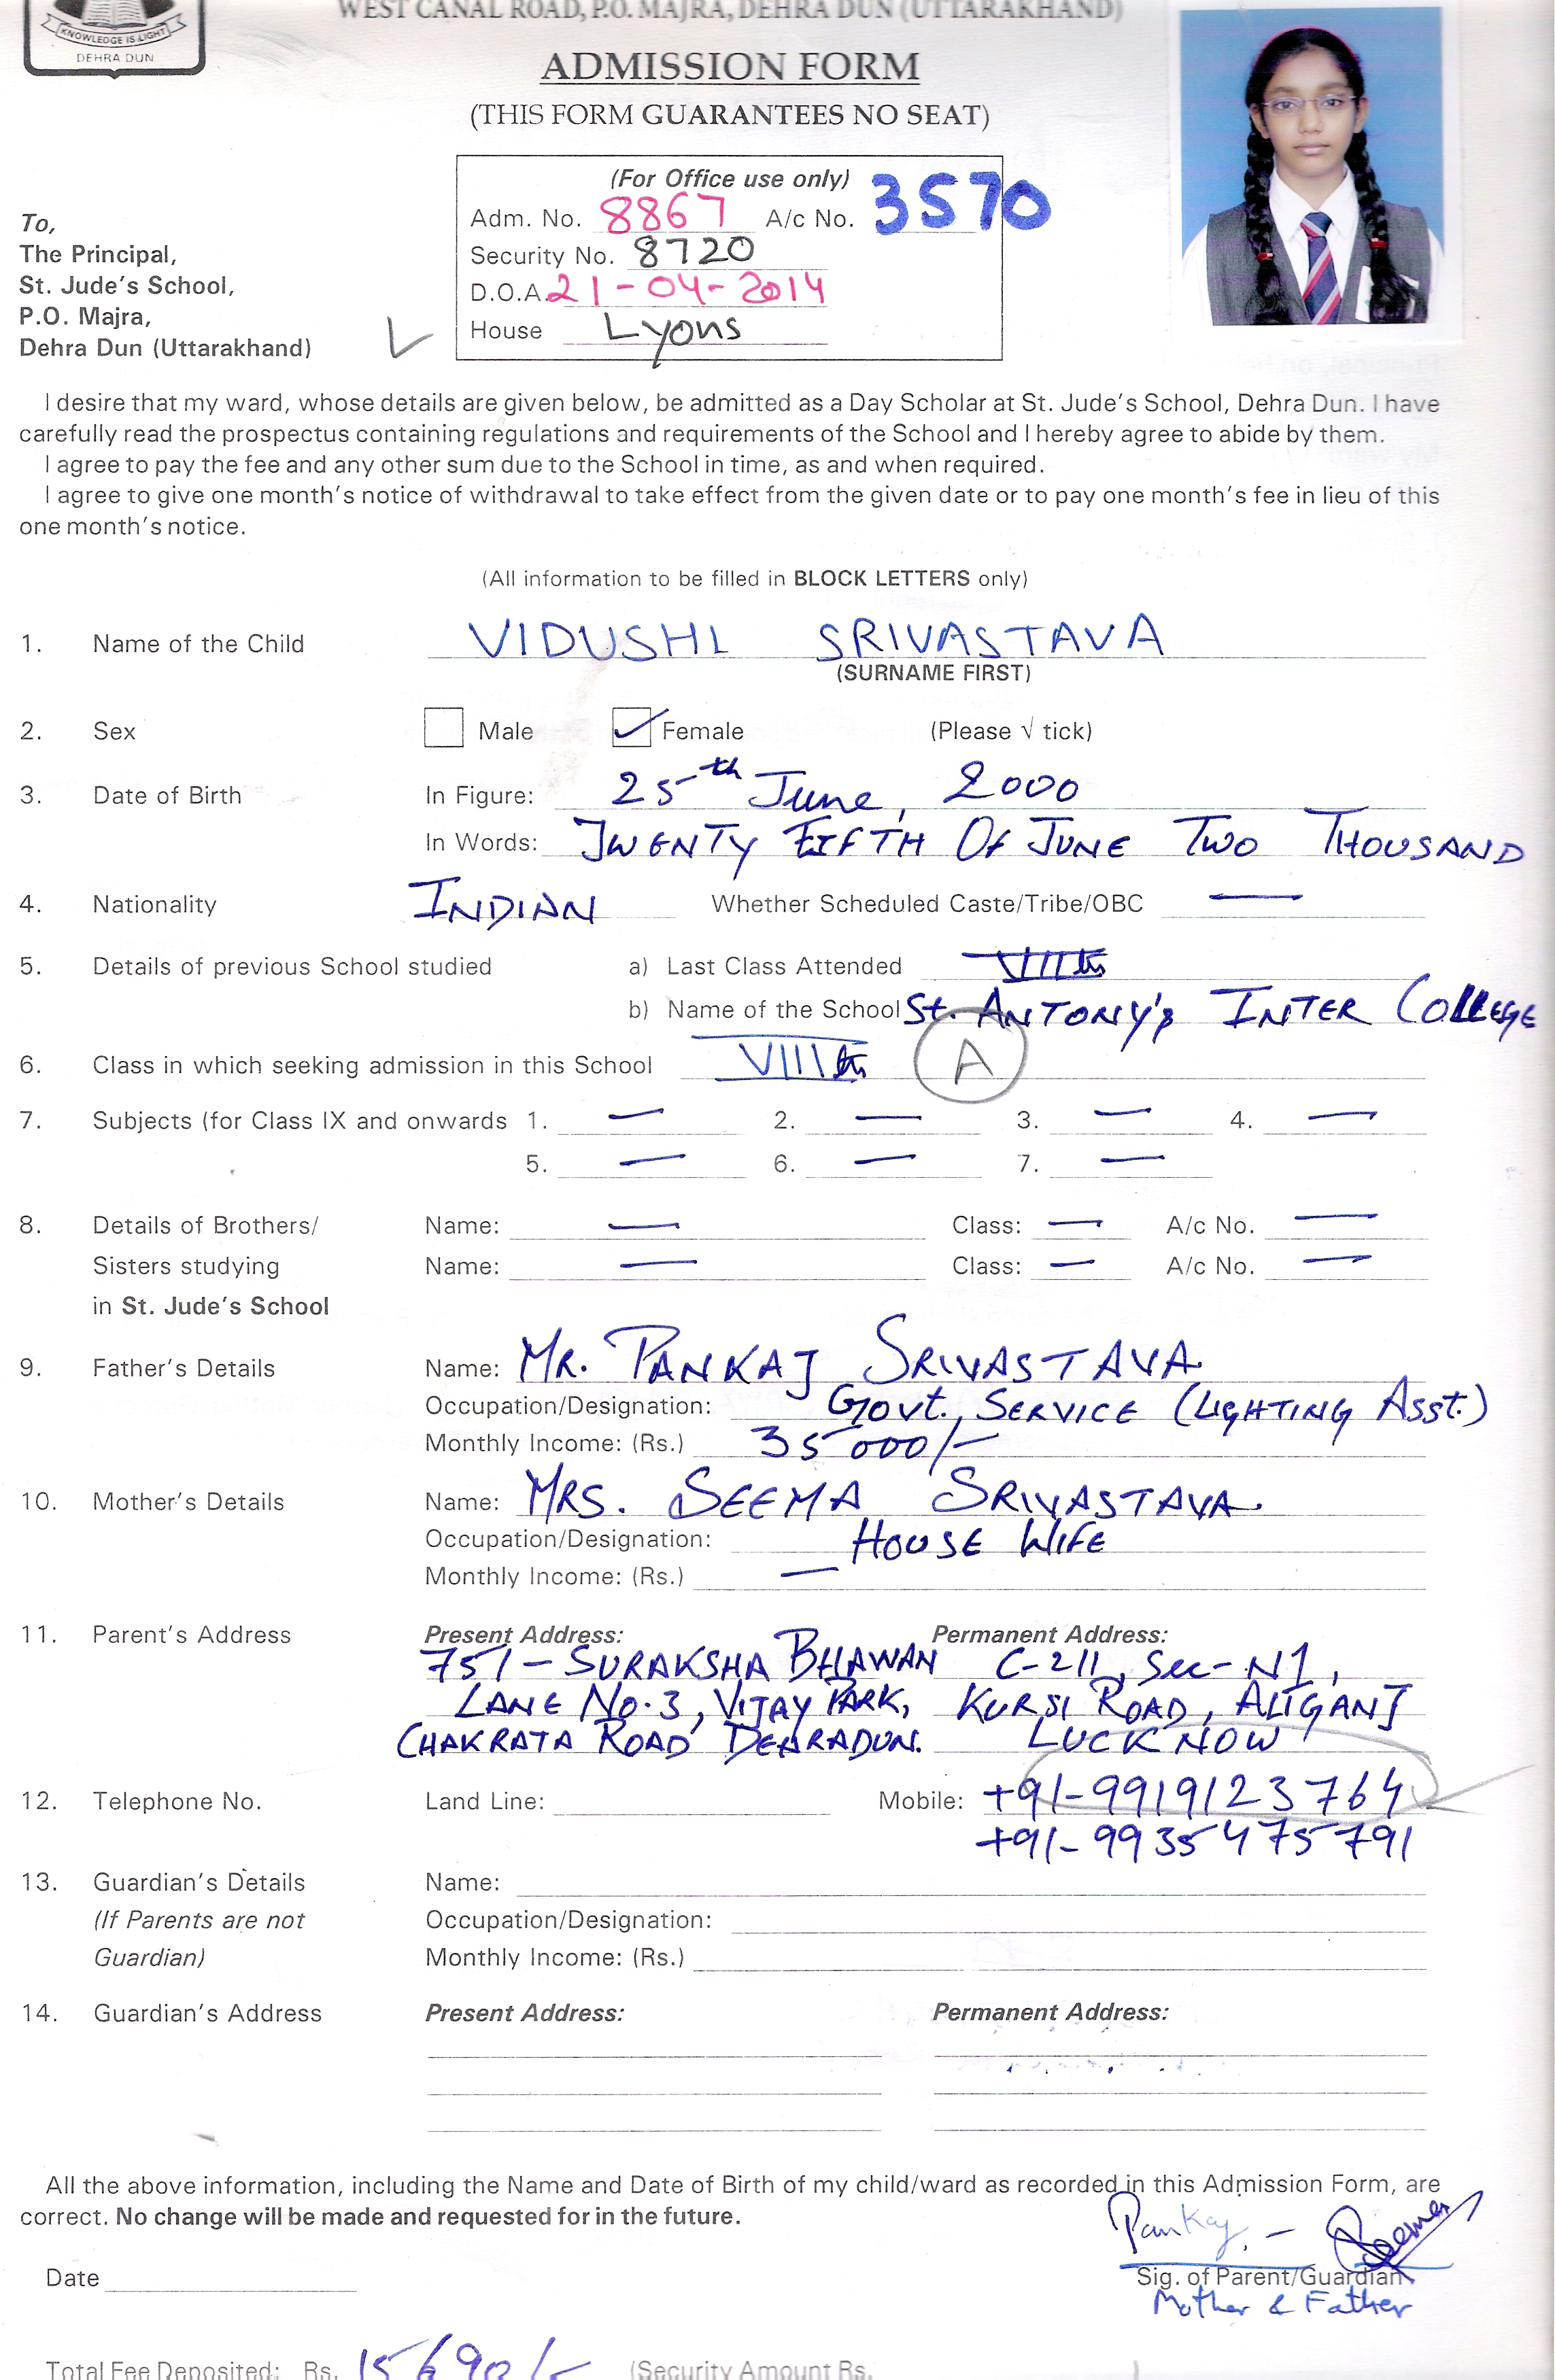 KNOWLEDGE IS LIGHT
DEHRA DUN
WEST CANAL ROAD, P.O. MAJRA, DEHRA DUN (UTTARAKHAND)
ADMISSION FORM
(THIS FORM GUARANTEES NO SEAT)
(For Office use only)
Adm. No. 8867 A/c No. 3570
Security No. 8720
D.O.A. 21-04-2014
House Lyons
To,
The Principal,
St. Jude's School,
P.O. Majra,
Dehra Dun (Uttarakhand)
I desire that my ward, whose details are given below, be admitted as a Day Scholar at St. Jude's School, Dehra Dun. I have
carefully read the prospectus containing regulations and requirements of the School and I hereby agree to abide by them.
I agree to pay the fee and any other sum due to the School in time, as and when required.
I agree to give one month's notice of withdrawal to take effect from the given date or to pay one month's fee in lieu of this
one month's notice.
(All information to be filled in BLOCK LETTERS only)
1. Name of the Child VIDUSHI SRIVASTAVA
(SURNAME FIRST)
2. Sex Male Female (Please √ tick)
3. Date of Birth In Figure: 25th June, 2000
In Words: TWENTY FIFTH OF JUNE TWO THOUSAND
4. Nationality INDIAN Whether Scheduled Caste/Tribe/OBC —
5. Details of previous School studied a) Last Class Attended VIIth
b) Name of the School St. ANTONY'S INTER COLLEGE
6. Class in which seeking admission in this School VIIIth A
7. Subjects (for Class IX and onwards 1. — 2. — 3. — 4. —
5. — 6. — 7. —
8. Details of Brothers/ Name: — Class: — A/c No. —
Sisters studying Name: — Class: — A/c No. —
in St. Jude's School
9. Father's Details Name: MR. PANKAJ SRIVASTAVA
Occupation/Designation: GOVT. SERVICE (LIGHTING ASST.)
Monthly Income: (Rs.) 35000/-
10. Mother's Details Name: MRS. SEEMA SRIVASTAVA.
Occupation/Designation: HOUSE WIFE
Monthly Income: (Rs.) —
11. Parent's Address Present Address: Permanent Address:
751 - SURAKSHA BHAWAN C-211, Sec-N1,
LANE NO.3, VIJAY PARK, KURSI ROAD, ALIGANJ
CHAKRATA ROAD DEHRADUN. LUCKNOW
12. Telephone No. Land Line: Mobile: +91-9919123764
+91-9935475791
13. Guardian's Details Name:
(If Parents are not Occupation/Designation:
Guardian) Monthly Income: (Rs.)
14. Guardian's Address Present Address: Permanent Address:
All the above information, including the Name and Date of Birth of my child/ward as recorded in this Admission Form, are
correct. No change will be made and requested for in the future.
Pankaj. - Seema
Date Sig. of Parent/Guardian
Mother & Father
Total Fee Deposited: Rs. 15690/- (Security Amount Rs.